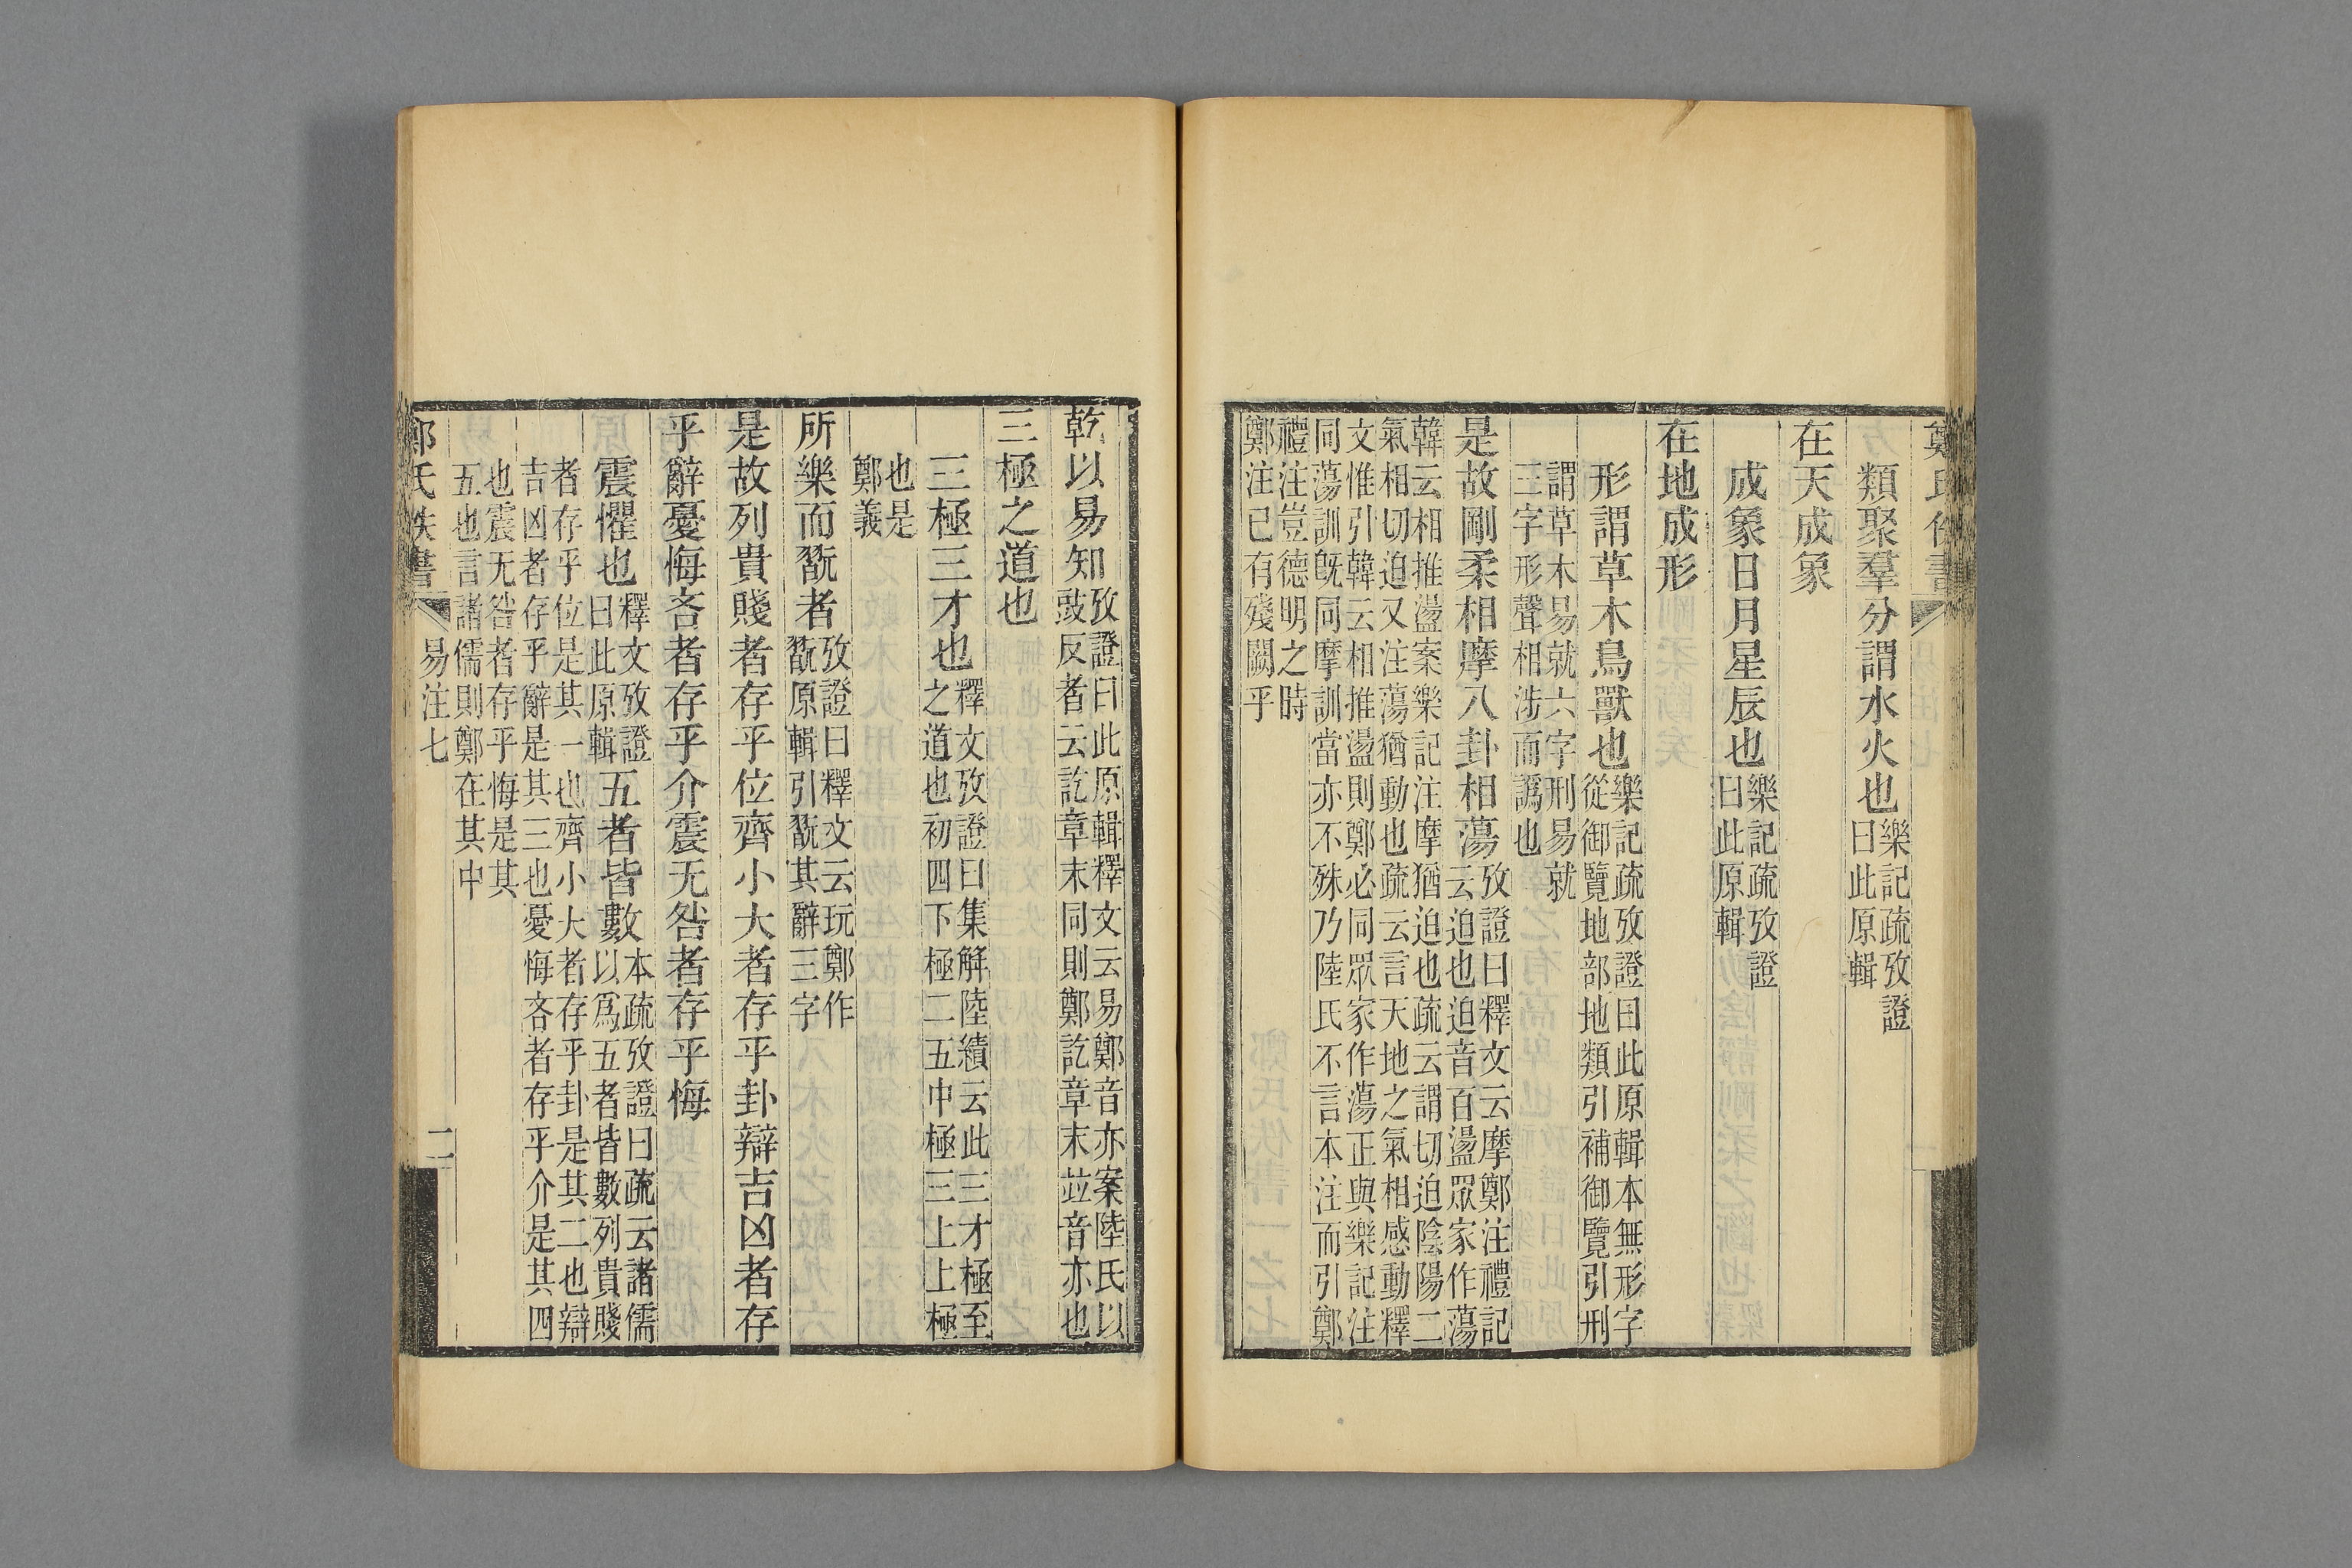 鄭氏佚書
類聚羣分謂水火也樂記疏攷證
曰此原輯
在天成象
成象日月星辰也樂記疏攷證
曰此原輯
在地成形
形謂草木鳥獸也樂記疏攷證曰此原輯本無形字
從御覽地部地類引補御覽引刑
謂草木易就六字刑易就
三字形聲相涉而譌也
是故剛柔相摩八卦相蕩攷證曰釋文云摩鄭注禮記
云迫也迫音百盪眾家作蕩
韓云相推盪案樂記注摩猶迫也疏云謂切迫陰陽二
氣相切迫又注蕩猶動也疏云言天地之氣相感動釋
文惟引韓云相推盪則鄭必同眾家作蕩正與樂記注
同蕩訓旣同摩訓當亦不殊乃陸氏不言本注而引鄭
禮注豈德明之時
鄭注已有殘闕乎
乾以易知攷證曰此原輯釋文云易鄭音亦案陸氏以
豉反者云訖章末同則鄭訖章末竝音亦也
三極之道也
三極三才也釋文攷證曰集解陸績云此三才極至
之道也初四下極二五中極三上上極
也是
鄭義
所樂而翫者攷證曰釋文云玩鄭作
翫原輯引翫其辭三字
是故列貴賤者存乎位齊小大者存乎卦辯吉凶者存
乎辭憂悔吝者存乎介震无咎者存乎悔
震懼也釋文攷證
曰此原輯五者皆數本疏攷證曰疏云諸儒
以爲五者皆數列貴賤
者存乎位是其一也齊小大者存乎卦是其二也辯
吉凶者存乎辭是其三也憂悔吝者存乎介是其四
也震无咎者存乎悔是其
五也言諸儒則鄭在其中
鄭氏佚書 易注七 二